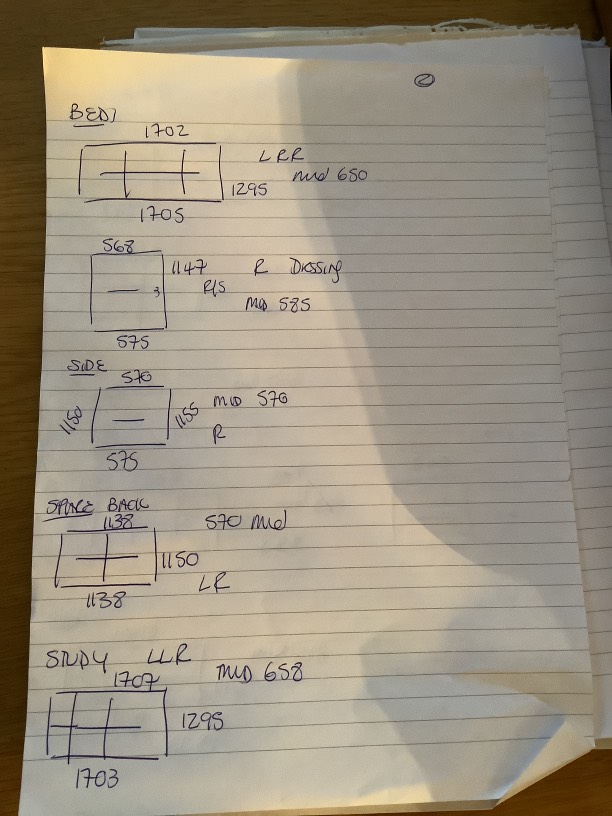 2
BED1
1702
LRR
1295 Mid 650
1705
568
1147 R Dressing
R/S
MID 585
575
SIDE
570
1150 1155 MID 570
R
575
SPACE BACK
1138 570 Mid
1150
LR
1138
STUDY LLR
1707 MID 658
1295
1703